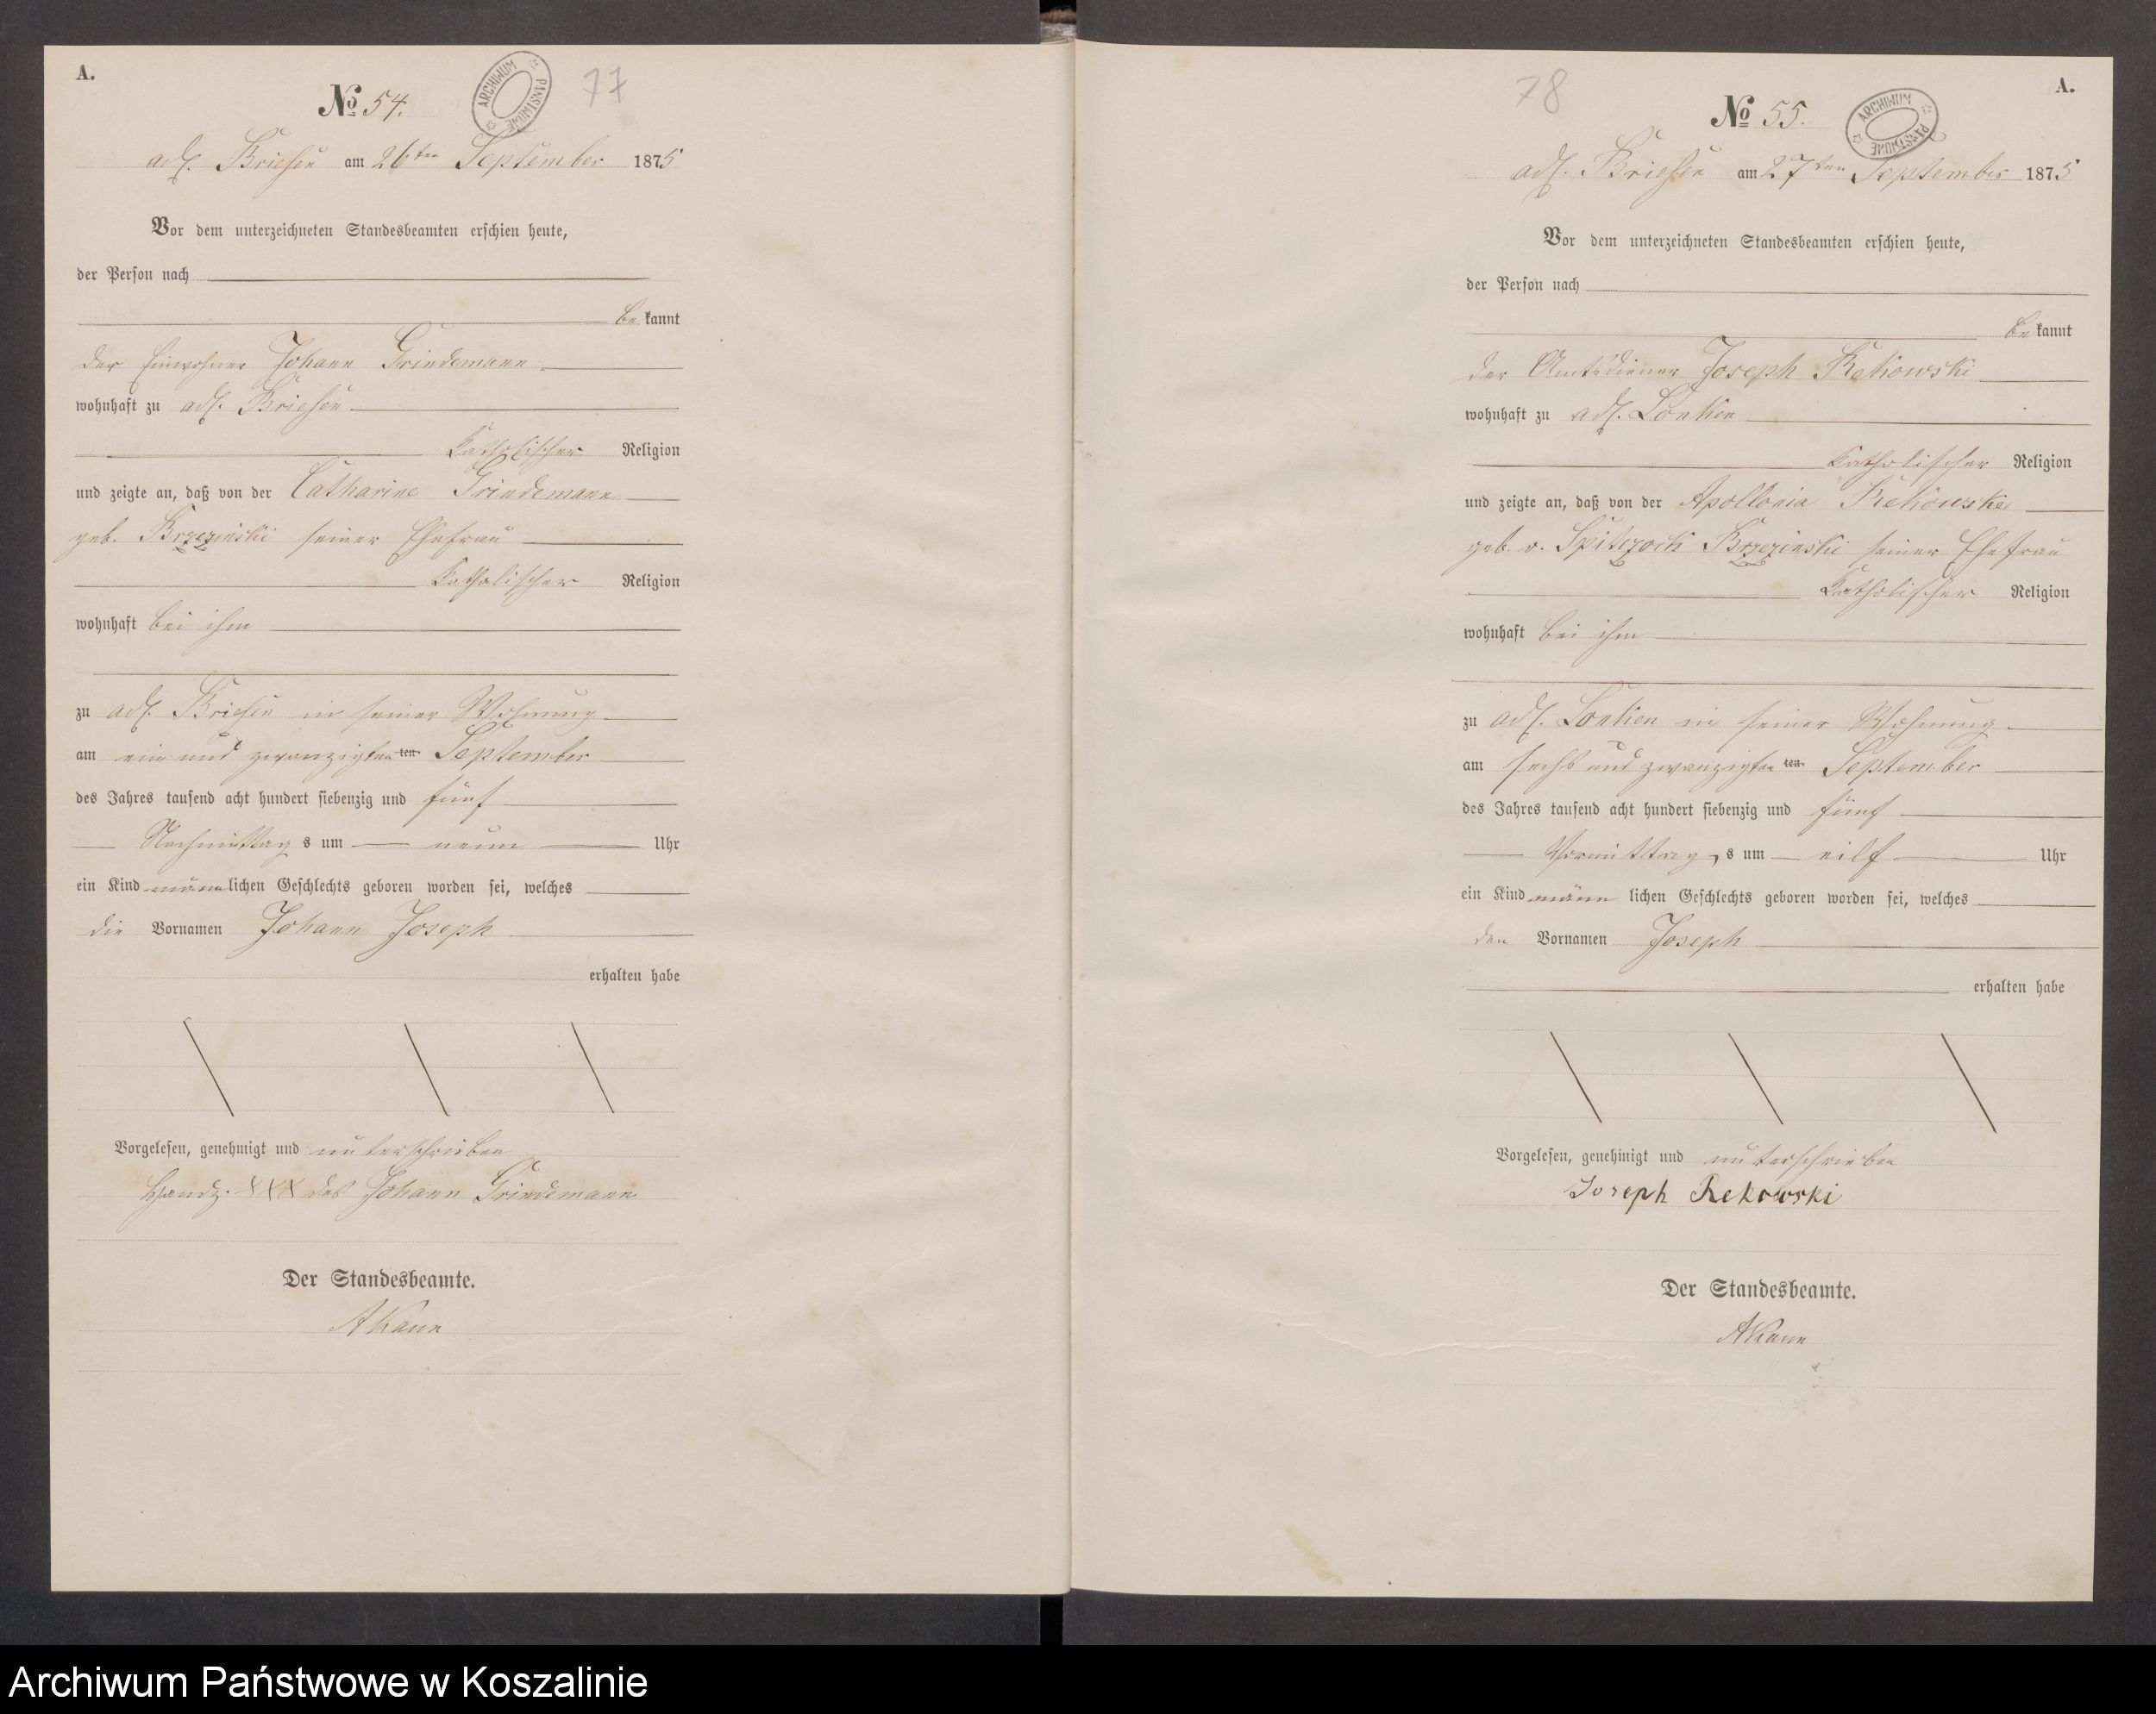 A.
№ 54.
ARCHIWUM PAŃSTWOWE
77
adl. Briesen am 26ten September 1875
Vor dem unterzeichneten Standesbeamten erschien heute,
der Person nach
bekannt
der Einwohner Johann Grindemann
wohnhaft zu adl. Briesen
katholischer Religion
und zeigte an, daß von der Catharine Grindemann
geb. Brzezinski seiner Ehefrau
katholischer Religion
wohnhaft bei ihm
zu adl. Briesen in seiner Wohnung
am ein und zwanzigsten ten September
des Jahres tausend acht hundert siebenzig und fünf
Nachmittags um neun Uhr
ein Kind männlichen Geschlechts geboren worden sei, welches
die Vornamen Johann Joseph
erhalten habe
Vorgelesen, genehmigt und unterschrieben
Handz. XXX des Johann Grindemann
Der Standesbeamte.
AKann
78
A.
№ 55.
ARCHIWUM PAŃSTWOWE
adl. Briesen am 27ten September 1875
Vor dem unterzeichneten Standesbeamten erschien heute,
der Person nach
bekannt
der Amtsdiener Joseph Rekowski
wohnhaft zu adl. Lonken
katholischer Religion
und zeigte an, daß von der Apollonia Rekowska
geb. v. Spitczock Brzezinski seiner Ehefrau
katholischer Religion
wohnhaft bei ihm
zu adl. Lonken in seiner Wohnung
am sechs und zwanzigsten ten September
des Jahres tausend acht hundert siebenzig und fünf
Vormittags um eilf Uhr
ein Kind männlichen Geschlechts geboren worden sei, welches
den Vornamen Joseph
erhalten habe
Vorgelesen, genehmigt und unterschrieben
Joseph Rekowski
Der Standesbeamte.
AKann
Archiwum Państwowe w Koszalinie